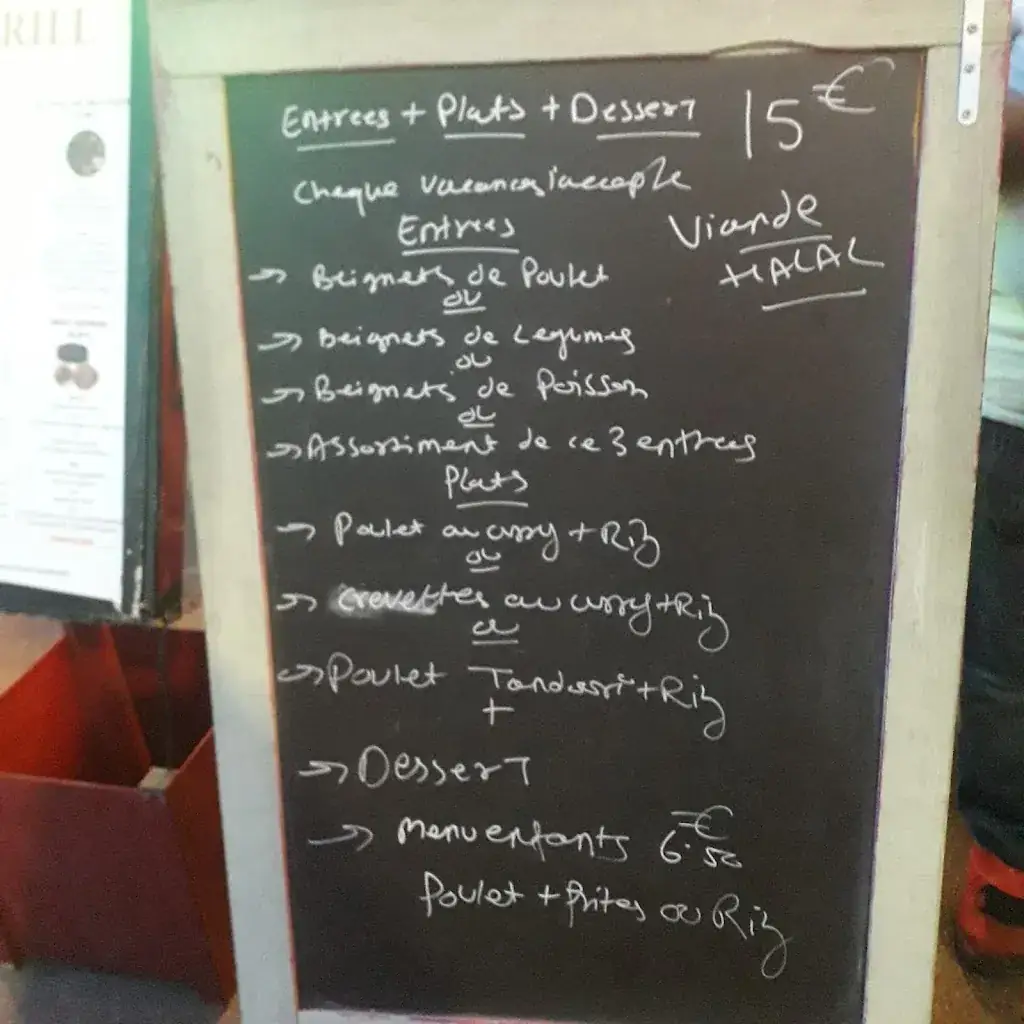 RILL
Entrees + Plats + Dessert 15€
Cheque vacances accepte
Viande
HALAL
Entrees
→ Beignets de Poulet
ou
→ Beignets de Legumes
ou
→ Beignets de Poisson
ou
→ Assortiment de ce 3 entrees
Plats
→ Poulet au curry + Riz
ou
→ crevettes au curry + Riz
ou
→ Poulet Tandoori + Riz
+
→ Dessert
→ Menu enfants 6.50 €
Poulet + frites ou Riz